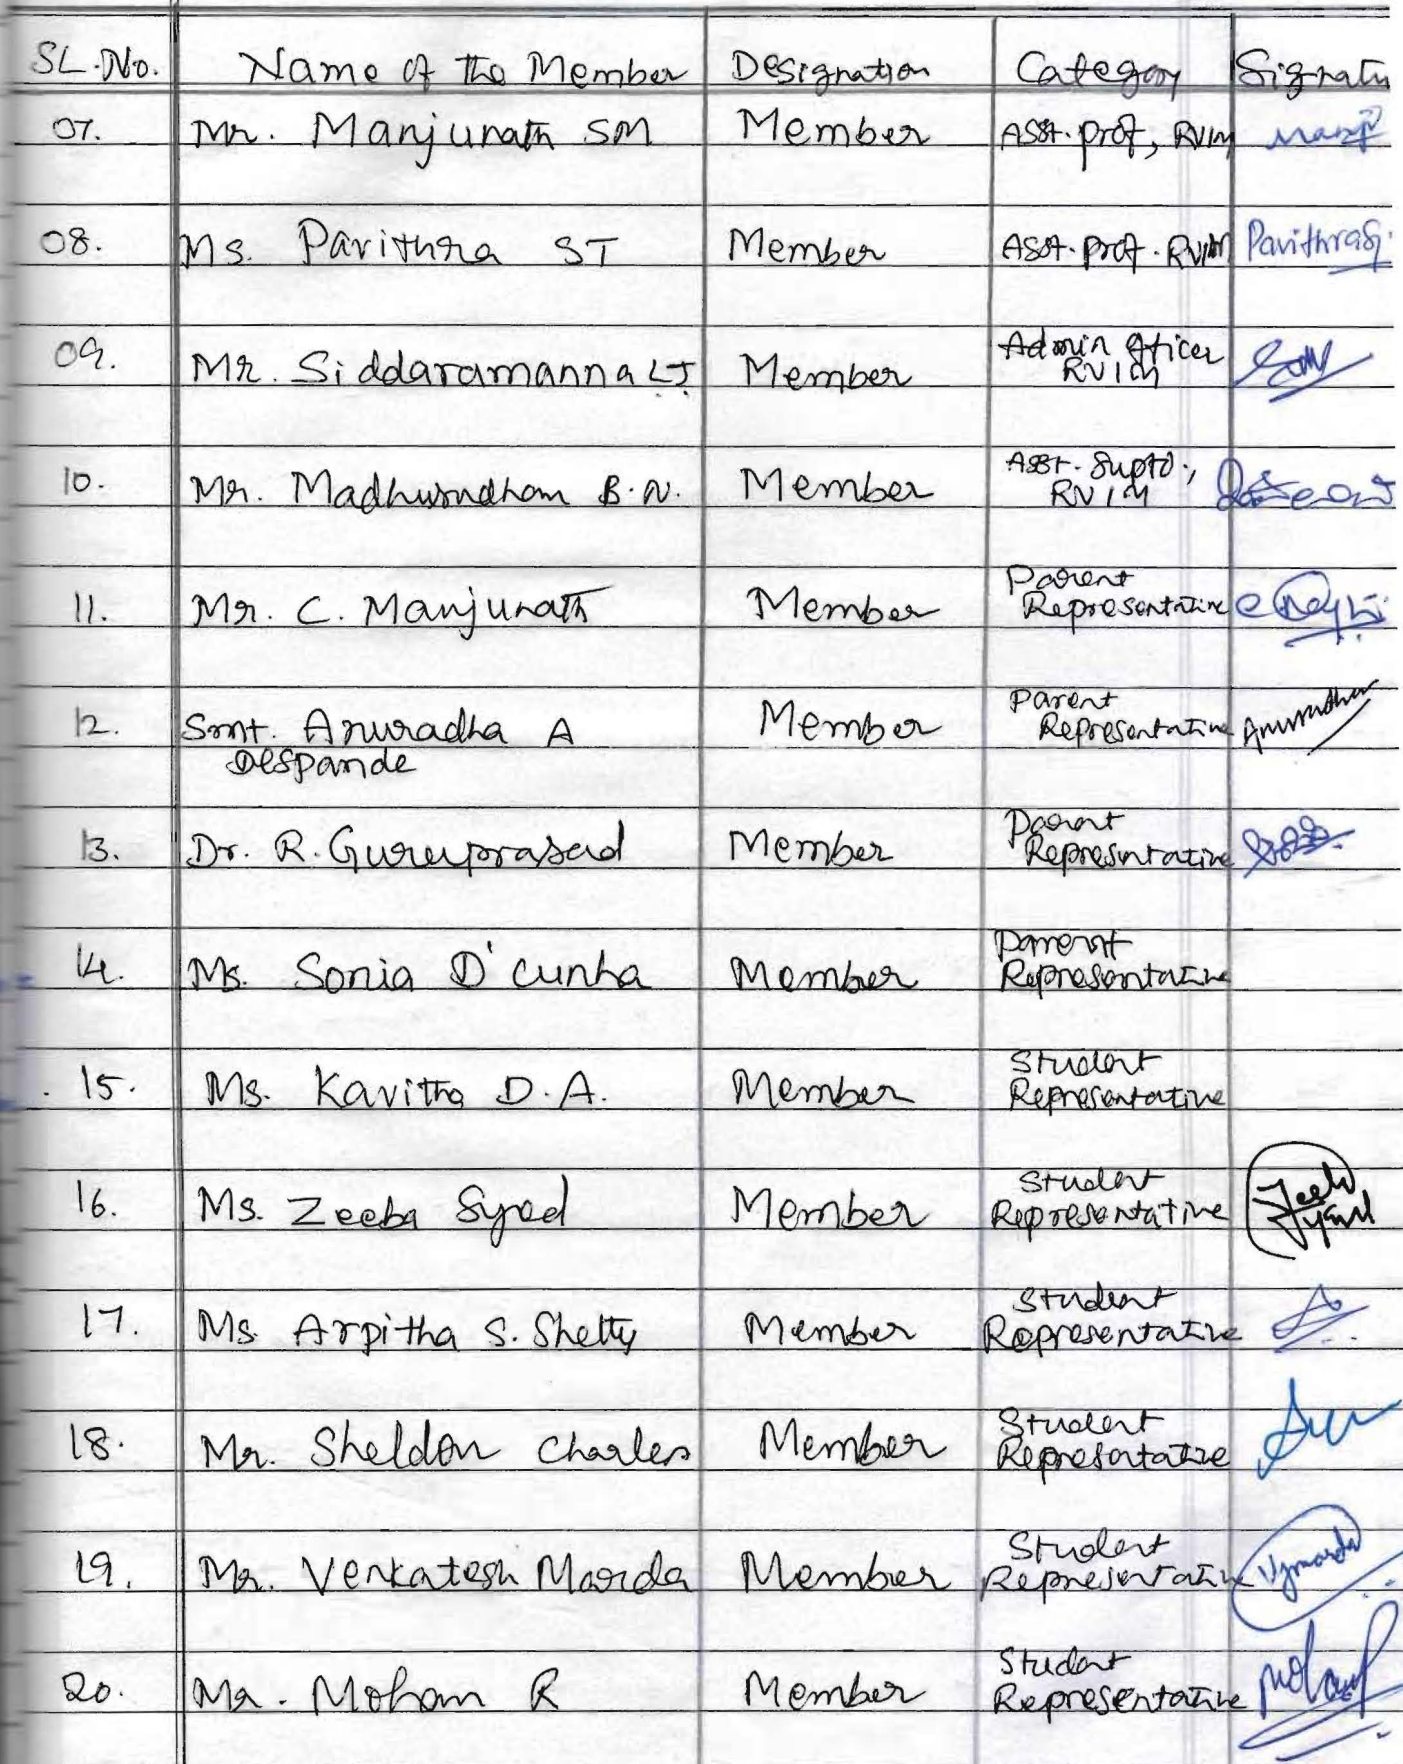 SL.No. Name of the Member Designation Category Signatu
07. Mr. Manjunath SM Member Asst. prof, RVIM Manj
08. Ms. Pavithra ST Member Asst. prof. RVIM Pavithra
09. Mr. Siddaramanna LJ Member Admin officer
RVIM
10. Mr. Madhusudham B.N. Member Asst. Suptd.,
RVIM
11. Mr. C. Manjunath Member Parent
Representative
12. Smt. Anuradha A Member Parent
Representative Anuradha
Despande
13. Dr. R. Guruprasad Member Parent
Representative
14. Ms. Sonia D'cunha Member Parent
Representative
15. Ms. Kavitha D.A. Member Student
Representative
16. Ms. Zeeba Syed Member Student
Representative
17. Ms. Arpitha S. Shetty Member Student
Representative
18. Mr. Sheldon Charles Member Student
Representative
19. Mr. Venkatesh Marda Member Student
Representative Vymarda
20. Mr. Moham R Member Student
Representative